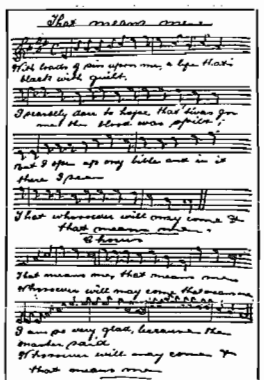 That means me
With loads of sin upon me, a life that's
black with guilt.
I scarcely dare to hope that 'twas for
me the blood was spilt;
But I ope up my bible and in it
there I see
That whosoever will may come &
that means me.
Chorus
That means me, that means me
Whosoever will may come that means me
I am so very glad, because the
master said
Whosoever will may come &
that means me